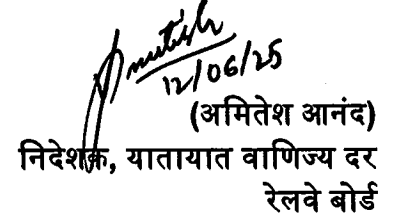 Amitesh
12/06/25
(अमितेश आनंद)
निदेशक, यातायात वाणिज्य दर
रेलवे बोर्ड